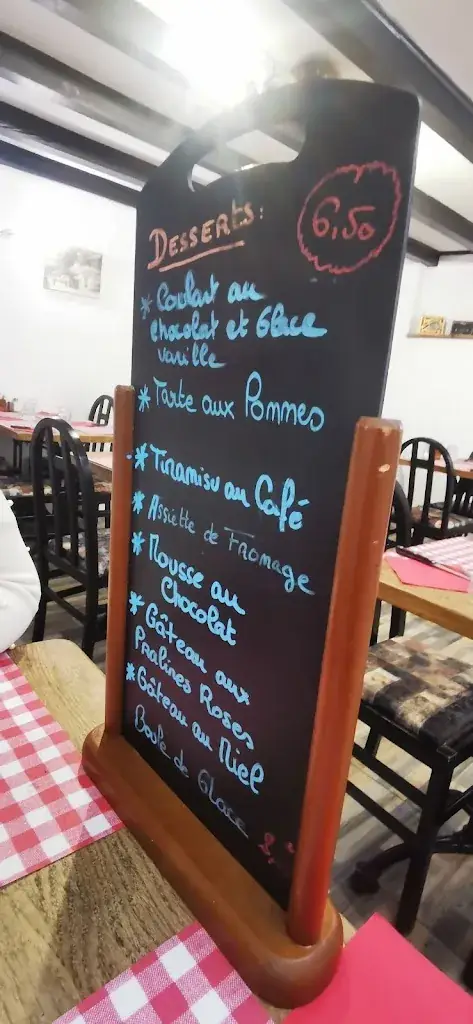 Desserts:
6,50
* Coulant au
chocolat et Glace
vanille
* Tarte aux Pommes
* Tiramisu au Café
* Assiette de Fromage
* Mousse au
Chocolat
* Gâteau aux
Pralines Roses
* Gâteau au Miel
Boule de Glace